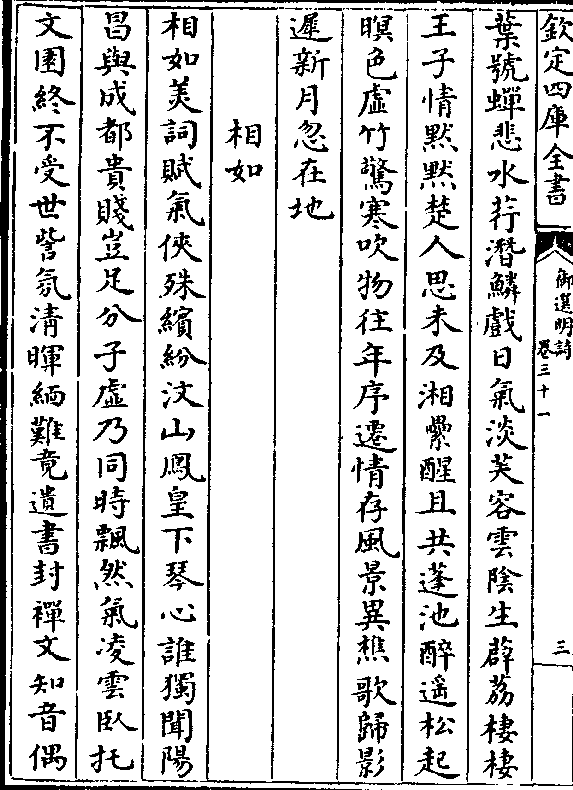 欽定四庫全書
御選明詩
卷三十一
三
葉號蟬悲水荇潛鱗戲日氣淡芙容雲陰生薜荔棲棲
王子情黙黙楚人思未及湘纍醒且共蓬池醉遥松起
暝色虚竹驚寒吹物往年序遷情存風景異樵歌歸影
遲新月忽在地
相如
相如美詞賦氣俠殊繽紛汶山鳳皇下琴心誰獨聞陽
昌與成都貴賤豈足分子虚乃同時飄然氣凌雲卧托
文園終不受世訾氛清暉緬難竟遺書封禪文知音偶